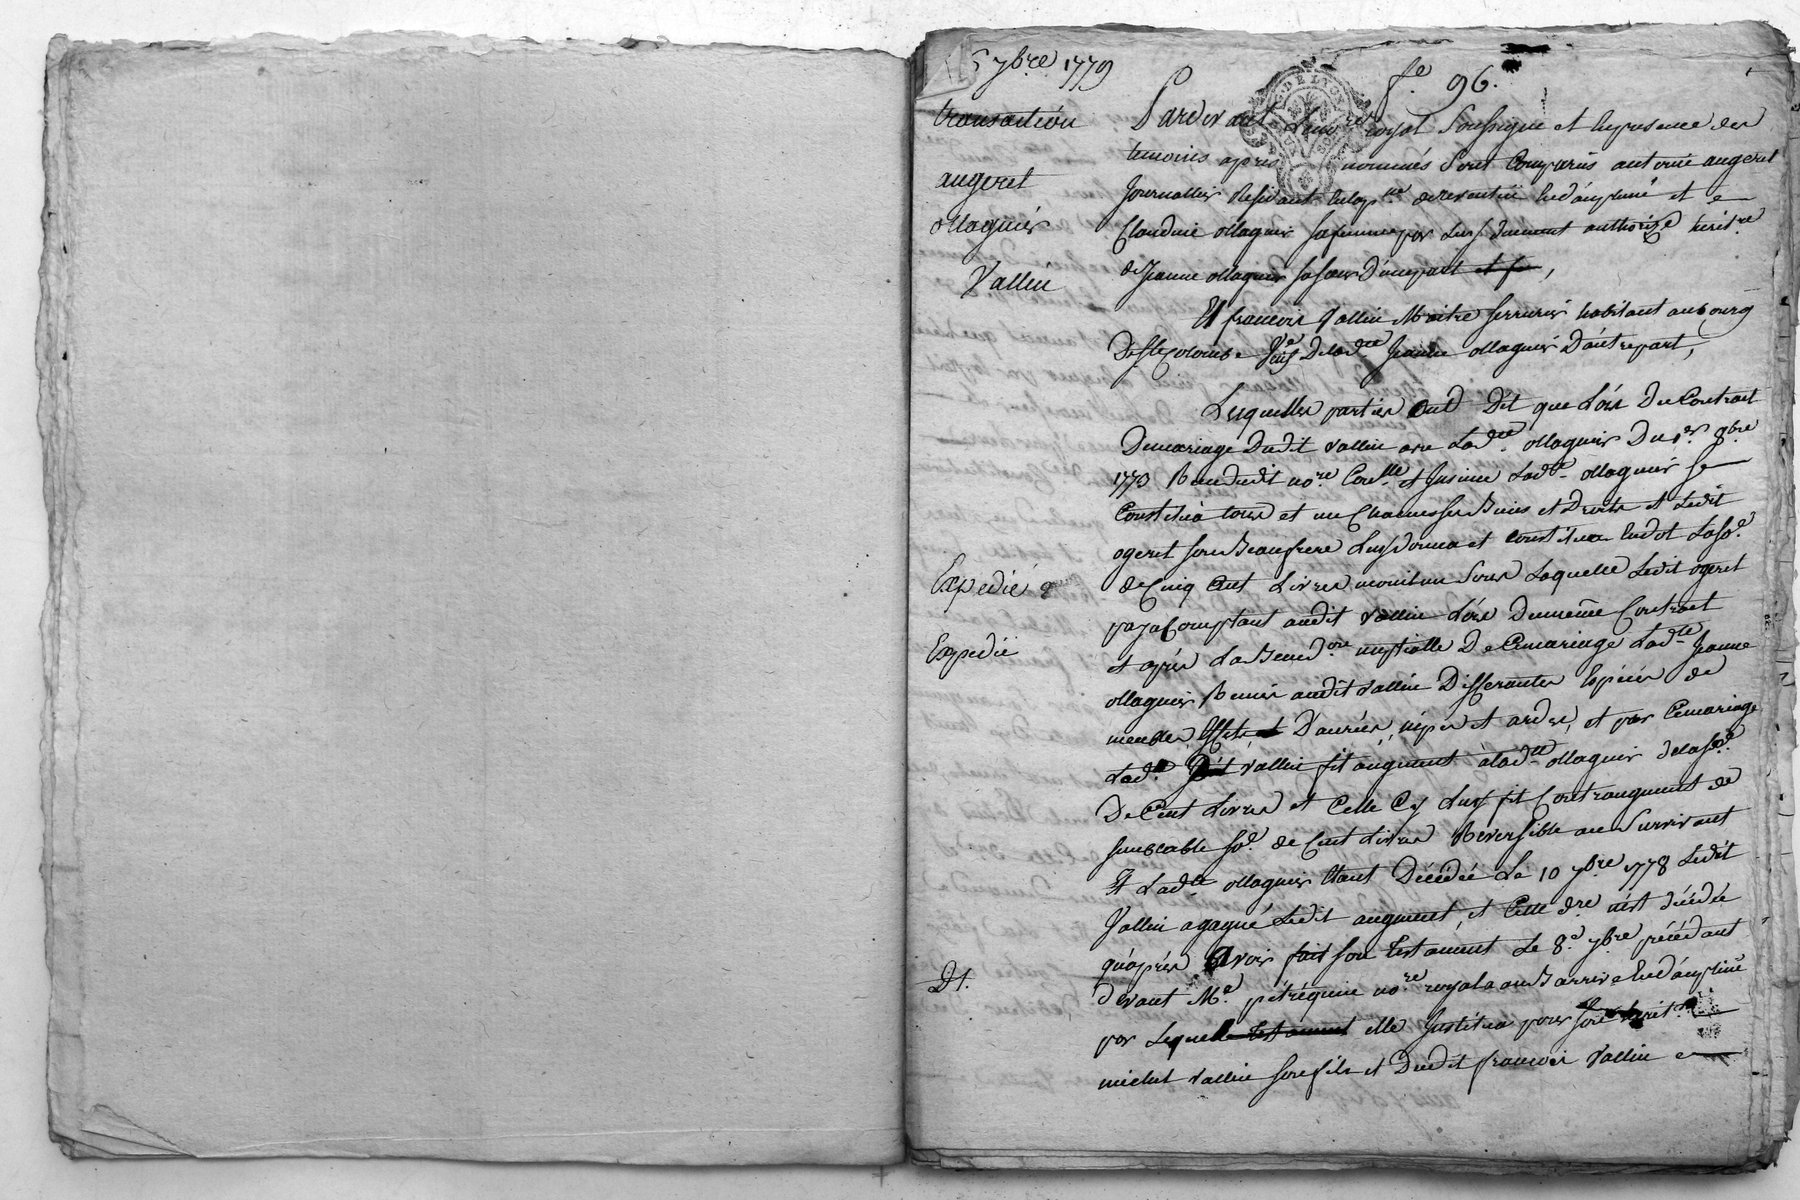 5 7bre 1779
fe 96.
transaction
augeret
ollagnier
Vallin
Expedié
Expedié
Dt.
GEN. DE LYON
Pardevant Le nore royal Soussigne et En presence des
temoins apres nommés Sont Comparus antoine augeret
journallier residant en la psse de reventin En dauphiné et
Claudine ollagnier sa femme par Luy duement authorizée heritre
de Jeanne ollagnier sa soeur D'une part et se,
Et francois Vallin Maitre serrurier habitant au bourg
De Ste Colombe veuf De lade Jeanne ollagnier D'autre part,
Lesquelles parties ont Dit que Lors Du Contrat
De mariage Dudit Vallin avec Ladte ollagnier Du 1er 8bre
1773 Receu dudit nore Conlle et Insinue Ladte ollagnier se
Constitüa tous et un Chacun ses Biens et Droits et Ledit
ogeret son Beaufrere Luy donna et constitua En dot La soe
de Cinq Cent Livres moienant Laquelle Ledit ogeret
paya Comptant audit Vallin Lors Du meme Contrat
et après La Bened.on nuptialle De Ce mariage Ladte Jeanne
ollagnier Remis audit Vallin Differantes Espèces de
meubles Effets et Danrées, nipes et ardes, et par Ce mariage
Ledt Vallin fit augment à Ladte ollagnier de la soe
De Cent Livres et Celle Cy Luy fit Contraugment de
semblable soe de Cent Livres Reversible au Survivant
Et Ladte ollagnier Etant Décédée Le 10 7bre 1778 Ledit
Vallin a gagné Ledit augment et Cette dre n'est décédée
qu'après Avoir fait son Testament Le 8e 7bre précédant
devant Me petrequin nore royal a en Dauphiné
par Lequel Testament elle Institua pour son herit.
michel Vallin son fils et Dudit francois Vallin